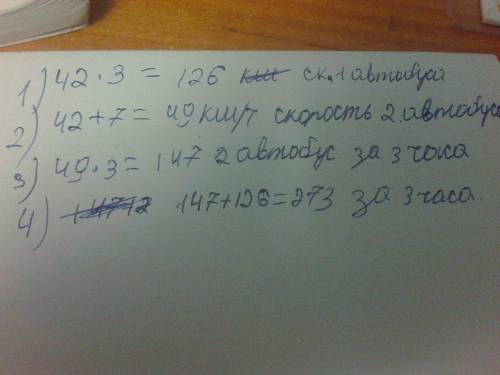 1) 42 · 3 = 126 ск. 1 автобуса
2) 42 + 7 = 49 км/ч скорость 2 автобуса
3) 49 · 3 = 147 2 автобус за 3 часа
4) 147 + 126 = 273 за 3 часа.